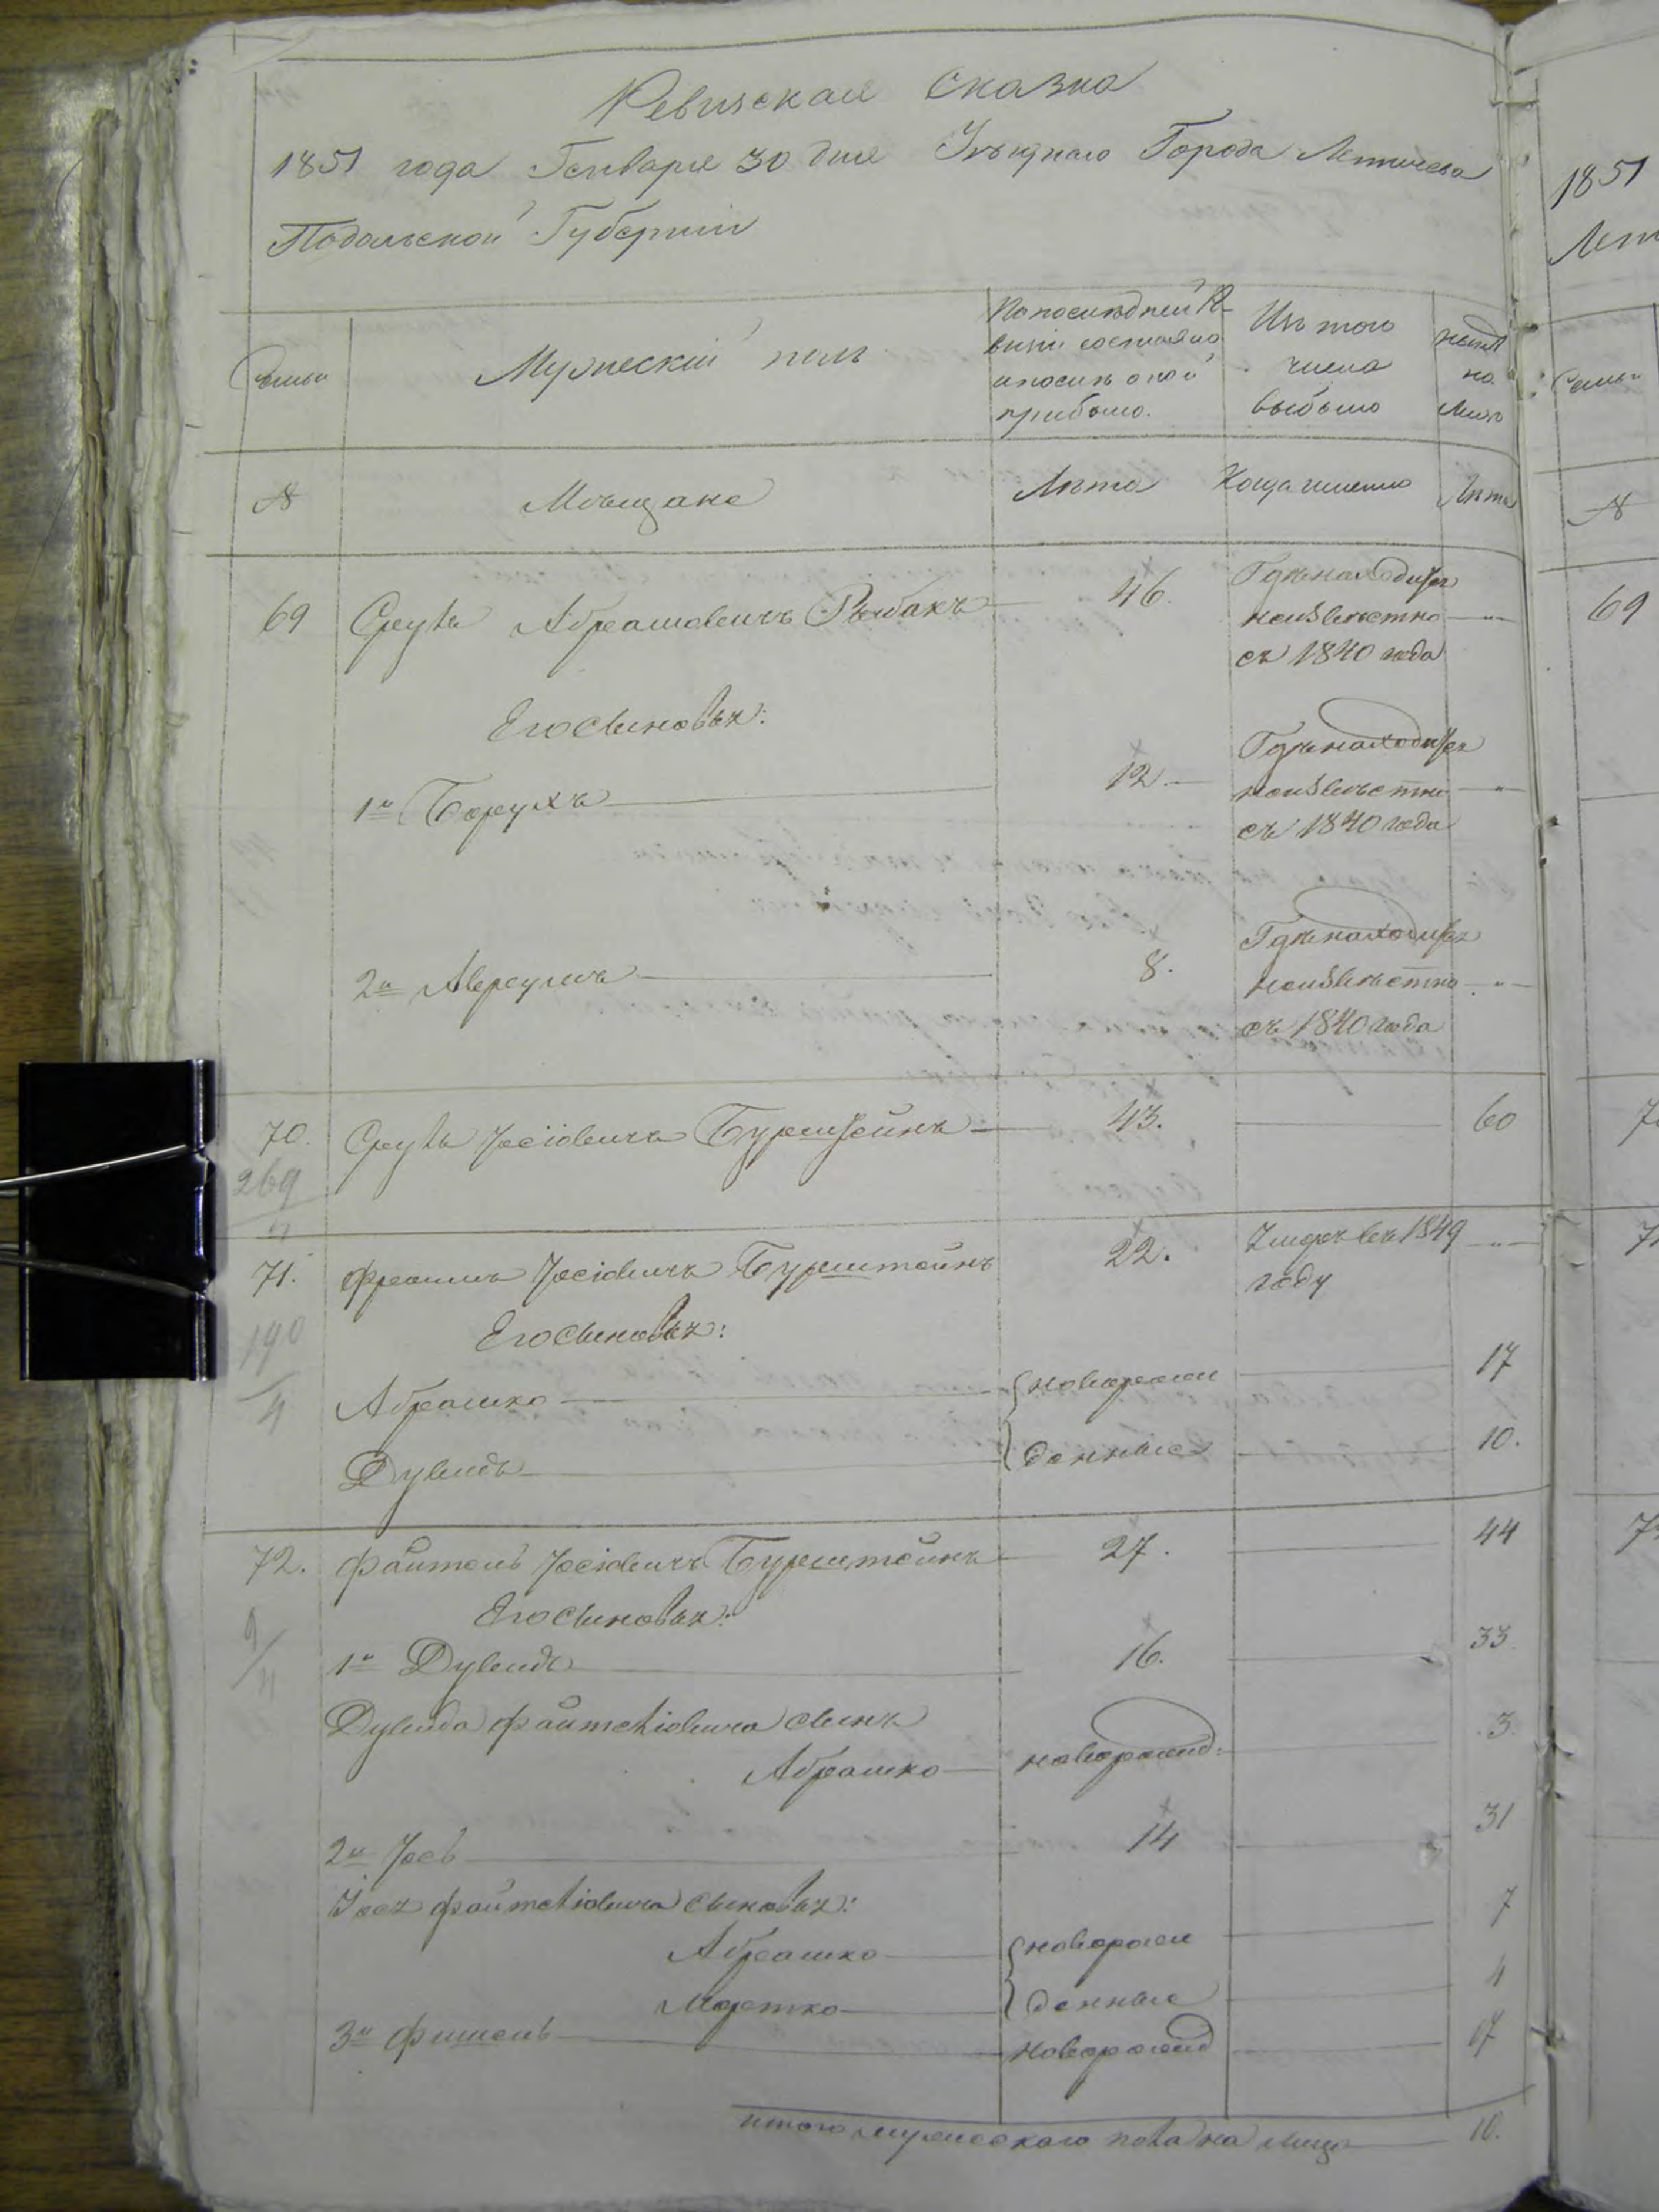 Ревизская Сказка
1851 года Генваря 30 дня Уѣзднаго Города Летичева
Подольской Губерніи
Семьи
Мужескій полъ
По последней Ре-
визіи состояло
и после оной
прибыло.
Изъ того
числа
выбыло
ныне
на
лицо
№
Мѣщане
Лѣта
Когда именно
Лѣта
69 Сруль Абрамовичъ Рыбакъ 46. Где находится
неизвестно
съ 1840 года
Его сыновья:
1й Борухъ 12. Где находится
неизвестно
съ 1840 года
2й 8. Где находится
неизвестно
съ 1840 года
70. Сруль Іосіовичъ Бурштейнъ 43. 60
269
4
71. Фроимъ Іосіовичъ Бурштейнъ 22. Умеръ въ 1849
году
Его сыновья:
190
4
Абрашко { новорож 17
Дувидъ { денные 10.
72. Файтель Іосіовичъ Бурштейнъ 27. 44
Его сыновья:
9/4
1й Дувидъ 16. 33
Дувида Файтеліовича сынъ
Абрашко новорожд: 3.
2й Іось 14 31
Іося Файтеліовича сыновья:
Абрашко { новорож 7
Мортко { денные 4
3й Фишель новорожд 17
Итого мужескаго пола на лицо 10.
1851
Лет
Семьи
№
69
7
7
7